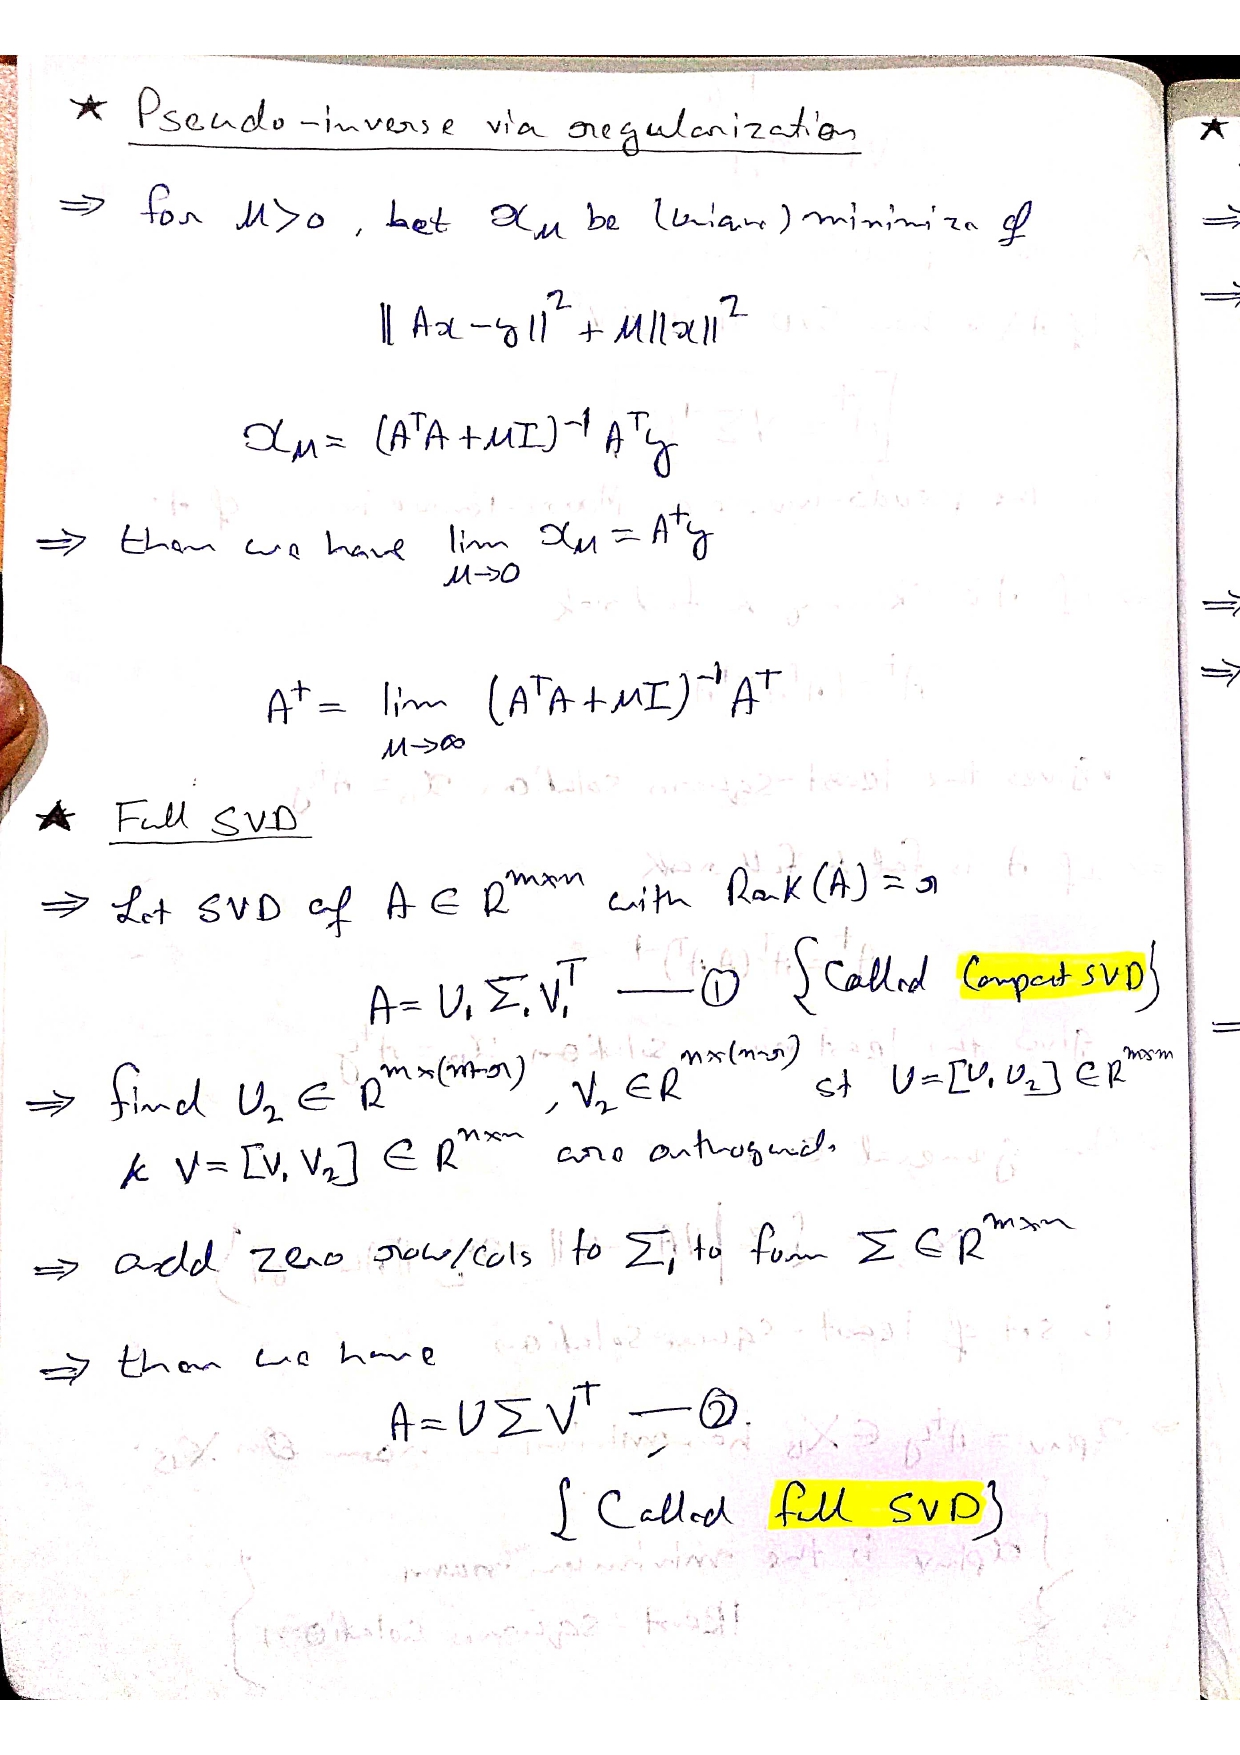 ★ Pseudo-inverse via regularization
⇒ for μ>0, let xμ be (unique) minimizer of
||Ax-y||² + μ||x||²
xμ = (AᵀA+μI)⁻¹Aᵀy
⇒ then we have lim xμ = A⁺y
μ→0
A⁺ = lim (AᵀA+μI)⁻¹Aᵀ
μ→∞
★ Full SVD
⇒ Let SVD of A ∈ Rᵐˣⁿ with Rank(A) = r
A = U₁Σ₁V₁ᵀ —① {Called Compact SVD}
⇒ find U₂ ∈ R^mx(m-r), V₂ ∈ R^nx(n-r) st U=[U₁ U₂] ∈ Rᵐˣᵐ
& V=[V₁ V₂] ∈ Rⁿˣⁿ are orthogonal.
⇒ add zero row/cols to Σ₁ to form Σ ∈ Rᵐˣⁿ
⇒ then we have
A = UΣVᵀ —②.
{Called full SVD}